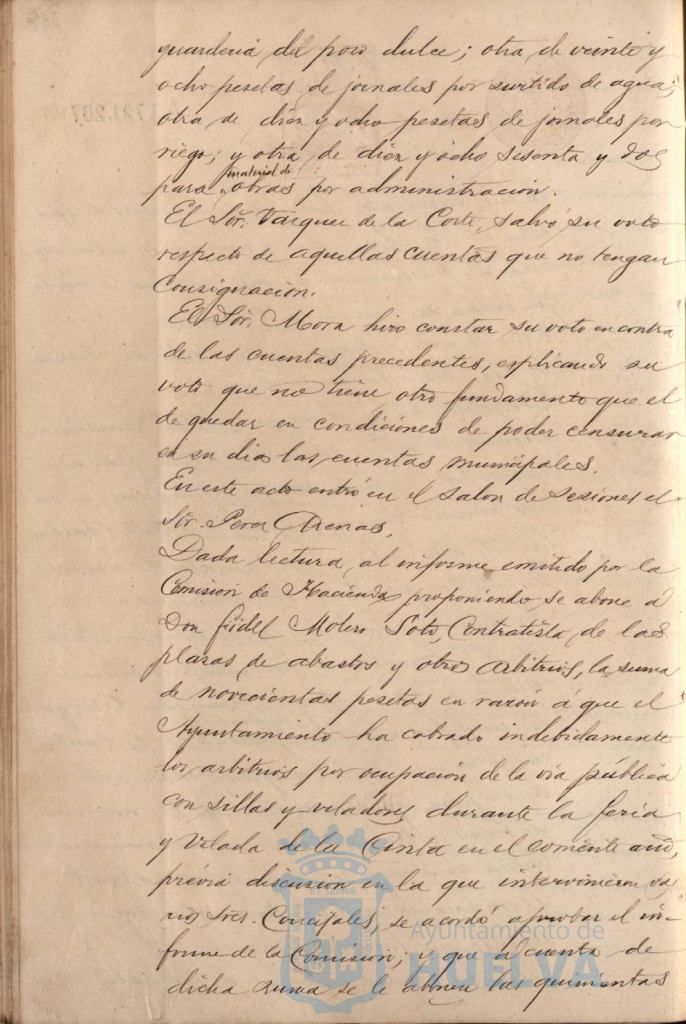 guarderia del pozo dulce; otra de veinte y
ocho pesetas de jornales por surtido de agua;
otra de diez y ocho pesetas de jornales por
riego; y otra de diez y ocho sesenta y dos
para material de obras por administracion.
El Sór. Vazquez de la Corte, salvó su voto
respecto de aquellas cuentas que no tengan
Consignacion.
El Sór. Mora hizo constar su voto en contra
de las cuentas precedentes, esplicando su
voto que no tiene otro fundamento que el
de quedar en condiciones de poder censurar
en su dia las cuentas munipales.
En este acto entró en el salon de sesiones el
Sór. Perez Arenas.
Dada lectura, al informe emitido por la
Comision de Hacienda proponiendo se abone á
Don Fidel Molero Soto, Contratista de las
plazas de abastos y otros arbitrios, la suma
de novecientas pesetas en razón á que el
Ayuntamiento ha cobrado indebidamente
los arbitrios por ocupación de la via pública
con sillas y veladores durante la feria
y Velada de la Cinta en el corriente año,
prévia discusion en la que intervinieron va
rios Sres. Concejales, se acordó aprobar el in-
forme de la Comision; y que á cuenta de
dicha suma se le abonen las quinientas
Ayuntamiento de
HUELVA